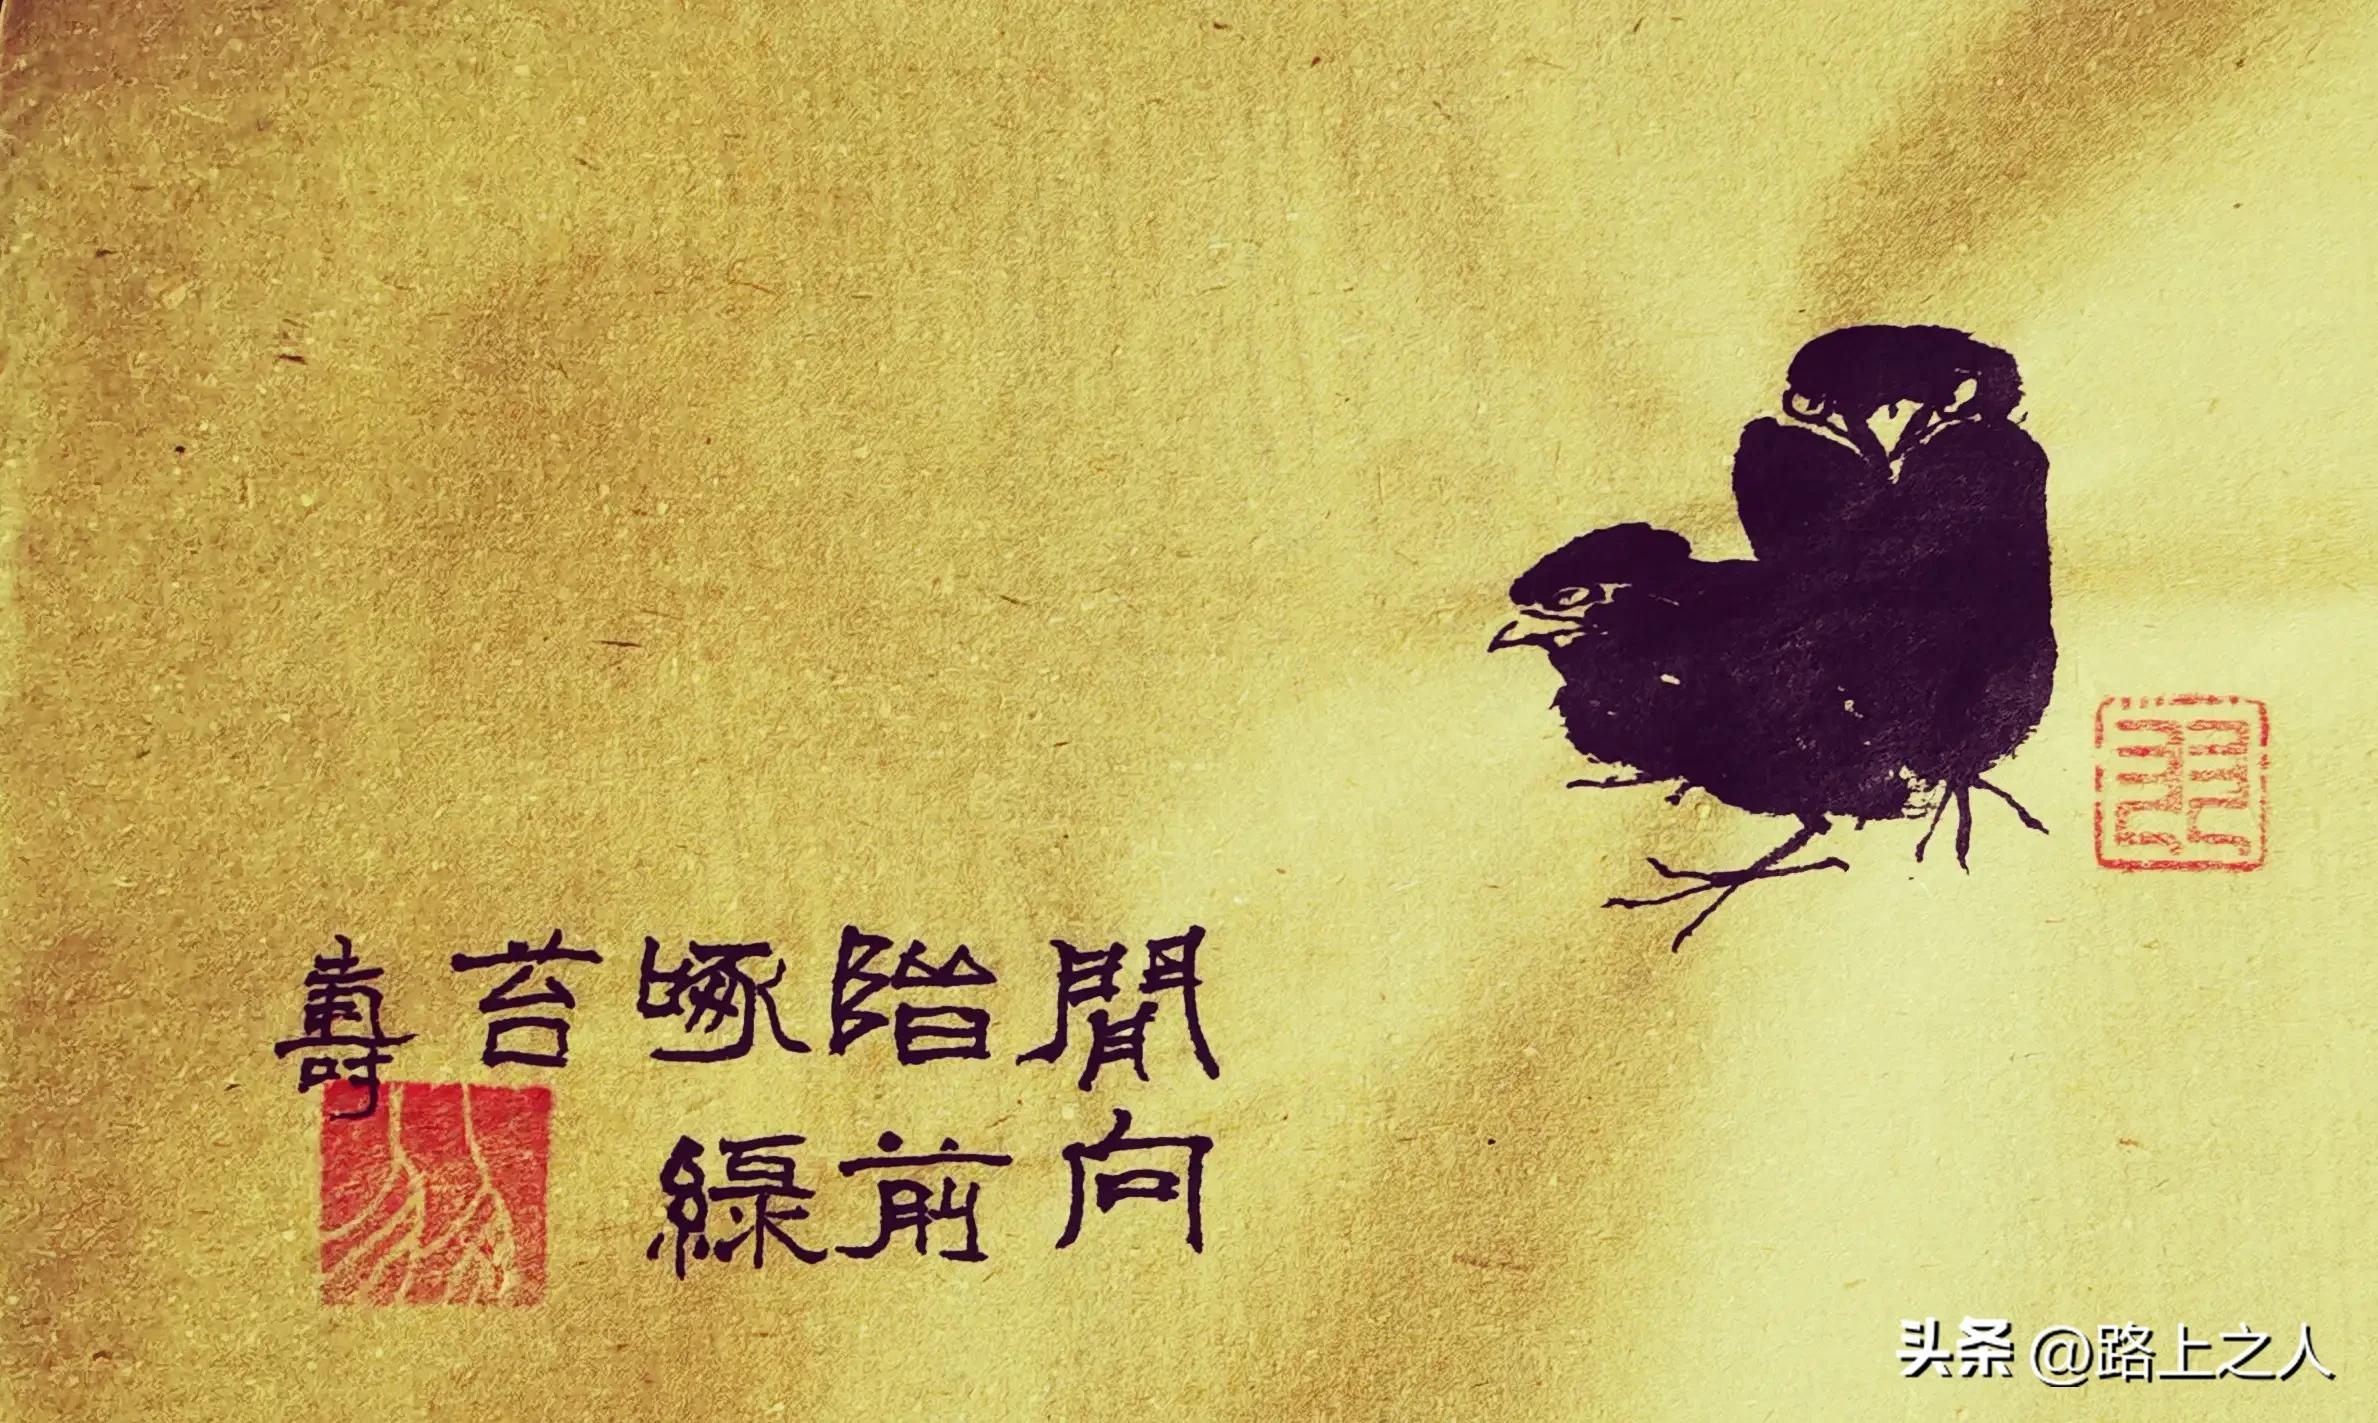 閒向
階前
啄綠
苔
壽
头条 @路上之人